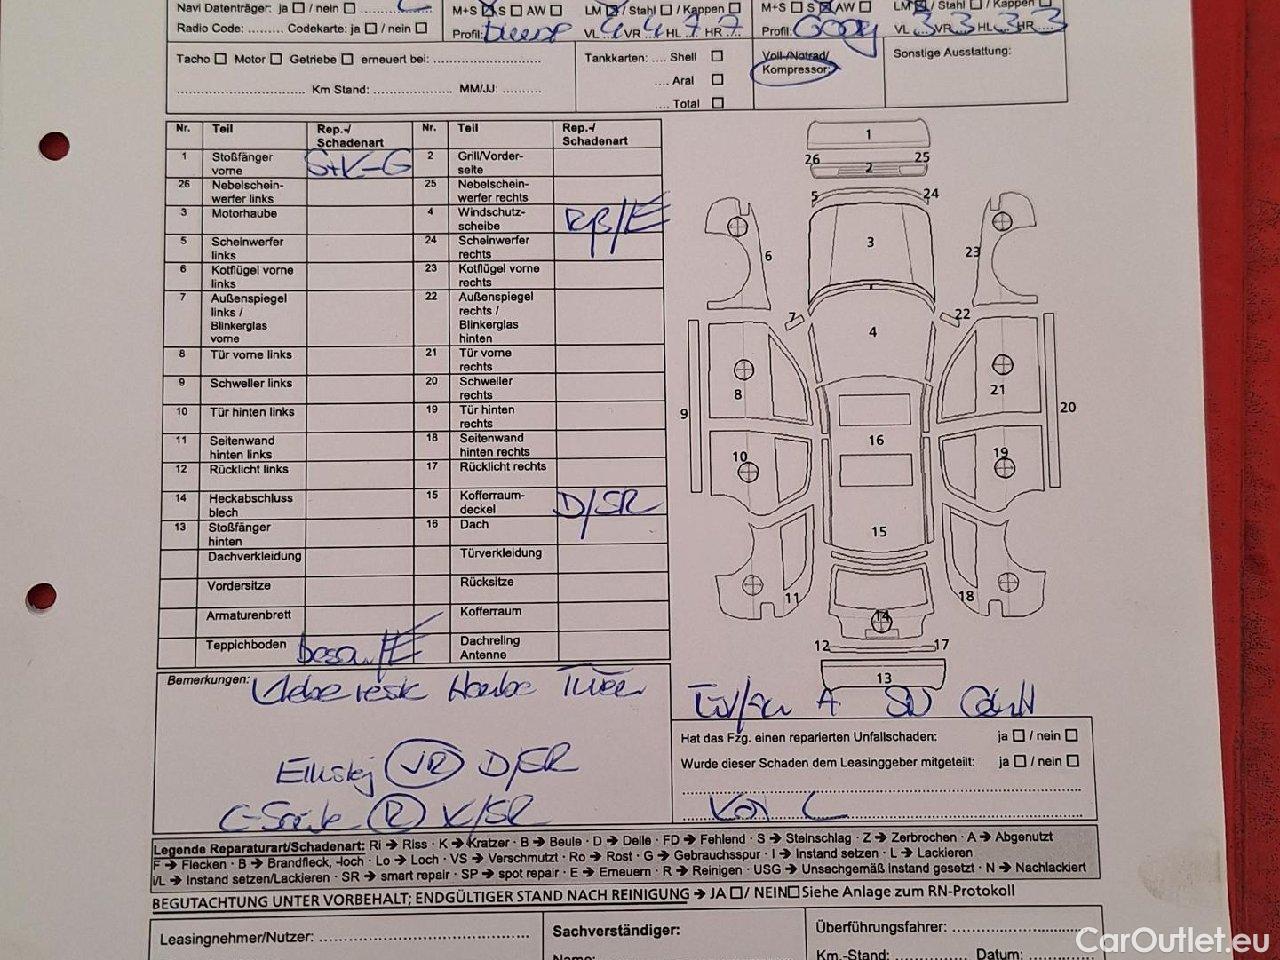 Navi Datenträger: ja / nein
M+S S AW
LM / Stahl / Kappen
M+S S AW
LM / Stahl / Kappen
Radio Code: .......... Codekarte: ja / nein
Profil:
VL 4 VR 4 HL 7 HR 7
Profil: Goody
VL 3 VR 3 HL 3 HR 3
Tacho Motor Getriebe erneuert bei:
Tankkarten: .... Shell
Voll-/Notrad/
Kompressor:
Sonstige Ausstattung:
.... Aral
Km Stand: MM/JJ:
.... Total
Nr. Teil Rep.-/ Schadenart Nr. Teil Rep.-/ Schadenart
1 Stoßfänger vorne G+K-G 2 Grill/Vorder-seite
26 Nebelschein-werfer links 25 Nebelschein-werfer rechts
3 Motorhaube 4 Windschutz-scheibe
5 Scheinwerfer links 24 Scheinwerfer rechts
6 Kotflügel vorne links 23 Kotflügel vorne rechts
7 Außenspiegel links / Blinkerglas vorne 22 Außenspiegel rechts / Blinkerglas hinten
8 Tür vorne links 21 Tür vorne rechts
9 Schweller links 20 Schweller rechts
10 Tür hinten links 19 Tür hinten rechts
11 Seitenwand hinten links 18 Seitenwand hinten rechts
12 Rücklicht links 17 Rücklicht rechts
14 Heckabschluss blech 15 Kofferraum-deckel D/SR
13 Stoßfänger hinten 16 Dach
Dachverkleidung Türverkleidung
Vordersitze Rücksitze
Armaturenbrett Kofferraum
Teppichboden Dachreling Antenne
1
26 2 25
5 24
6 3 23
7 22
4
8 21
9 20
16
10 19
15
11 18
14
12 17
13
Bemerkungen: Kleberreste Haube Türen
A
Hat das Fzg. einen reparierten Unfallschaden: ja / nein
Wurde dieser Schaden dem Leasinggeber mitgeteilt: ja / nein
Einstieg VR D/SR
C-Säule R K/SR
Legende Reparaturart/Schadenart: Ri → Riss · K → Kratzer · B → Beule · D → Delle · FD → Fehlend · S → Steinschlag · Z → Zerbrochen · A → Abgenutzt
F → Flecken · B → Brandfleck, -loch · Lo → Loch · VS → Verschmutzt · Ro → Rost · G → Gebrauchsspur · I → Instand setzen · L → Lackieren
I/L → Instand setzen/Lackieren · SR → smart repair · SP → spot repair · E → Erneuern · R → Reinigen · USG → Unsachgemäß Instand gesetzt · N → Nachlackiert
BEGUTACHTUNG UNTER VORBEHALT; ENDGÜLTIGER STAND NACH REINIGUNG → JA / NEIN Siehe Anlage zum RN-Protokoll
Leasingnehmer/Nutzer:
Sachverständiger:
Überführungsfahrer:
Name:
Km.-Stand: Datum:
CarOutlet.eu